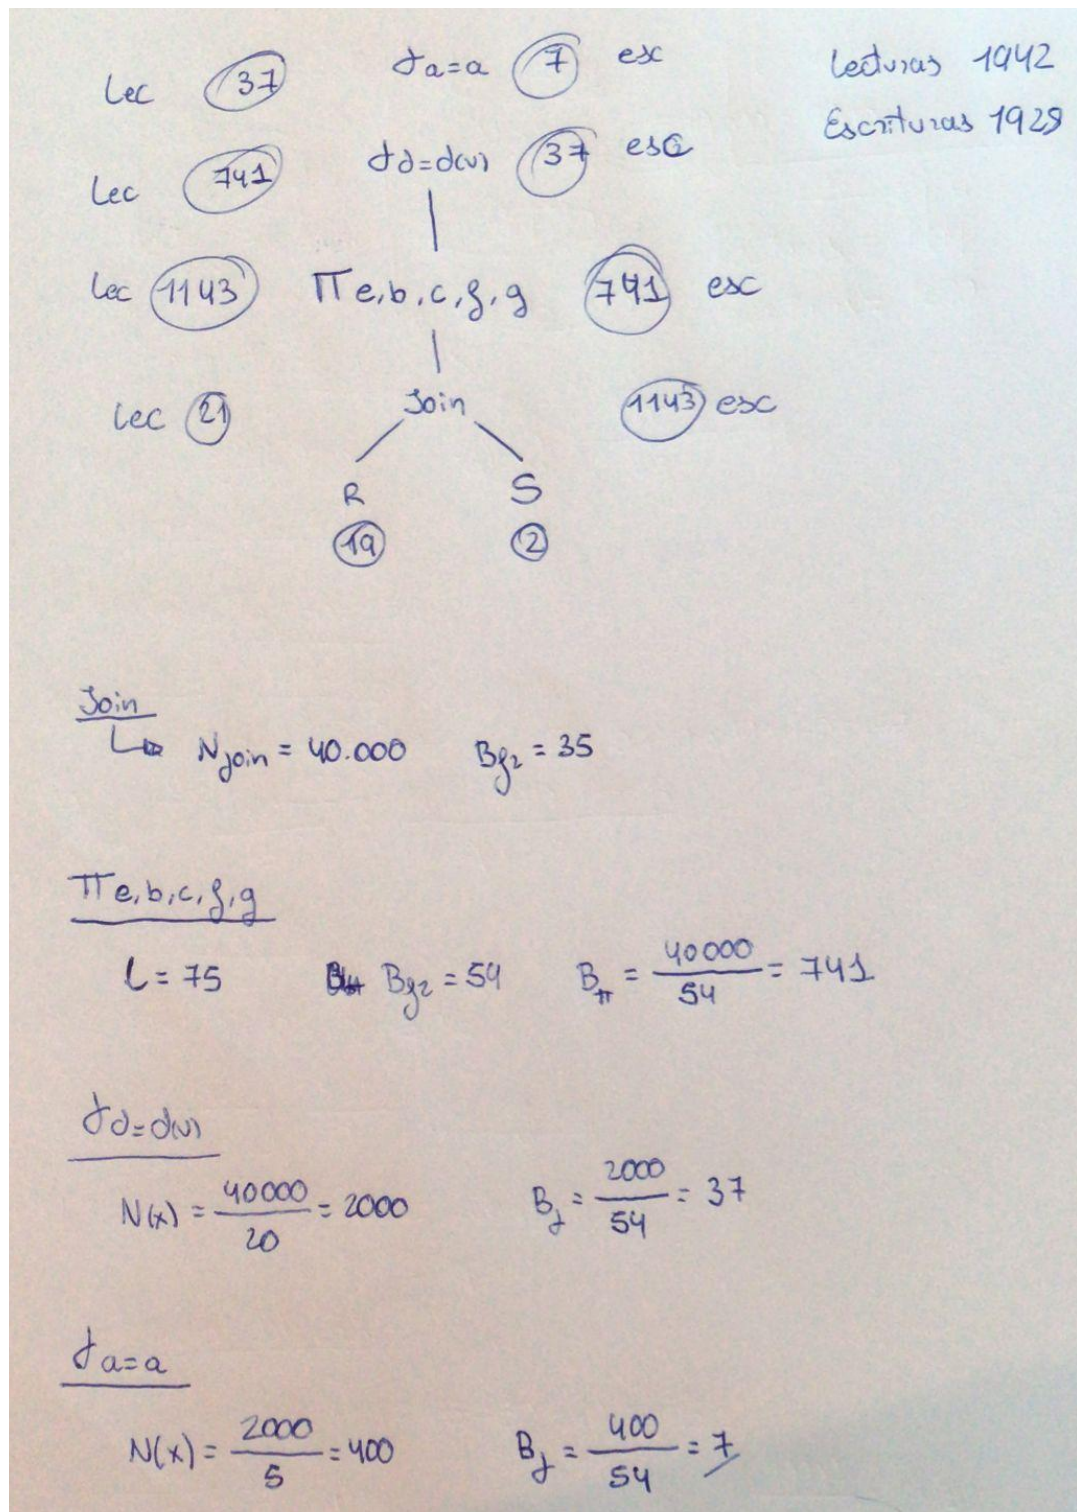 Lec 37 σa=a 7 esc Lecturas 1942
Escrituras 1928
Lec 741 σd=d(v) 37 esc
Lec 1143 Πe,b,c,f,g 741 esc
Lec 21 Join 1143 esc
R S
19 2
Join
↳ Njoin = 40.000 Bfr = 35
Πe,b,c,f,g
L = 75 Bfr = 54 Bπ = 40000/54 = 741
σd=d(v)
N(x) = 40000/20 = 2000 Bσ = 2000/54 = 37
σa=a
N(x) = 2000/5 = 400 Bσ = 400/54 = 7